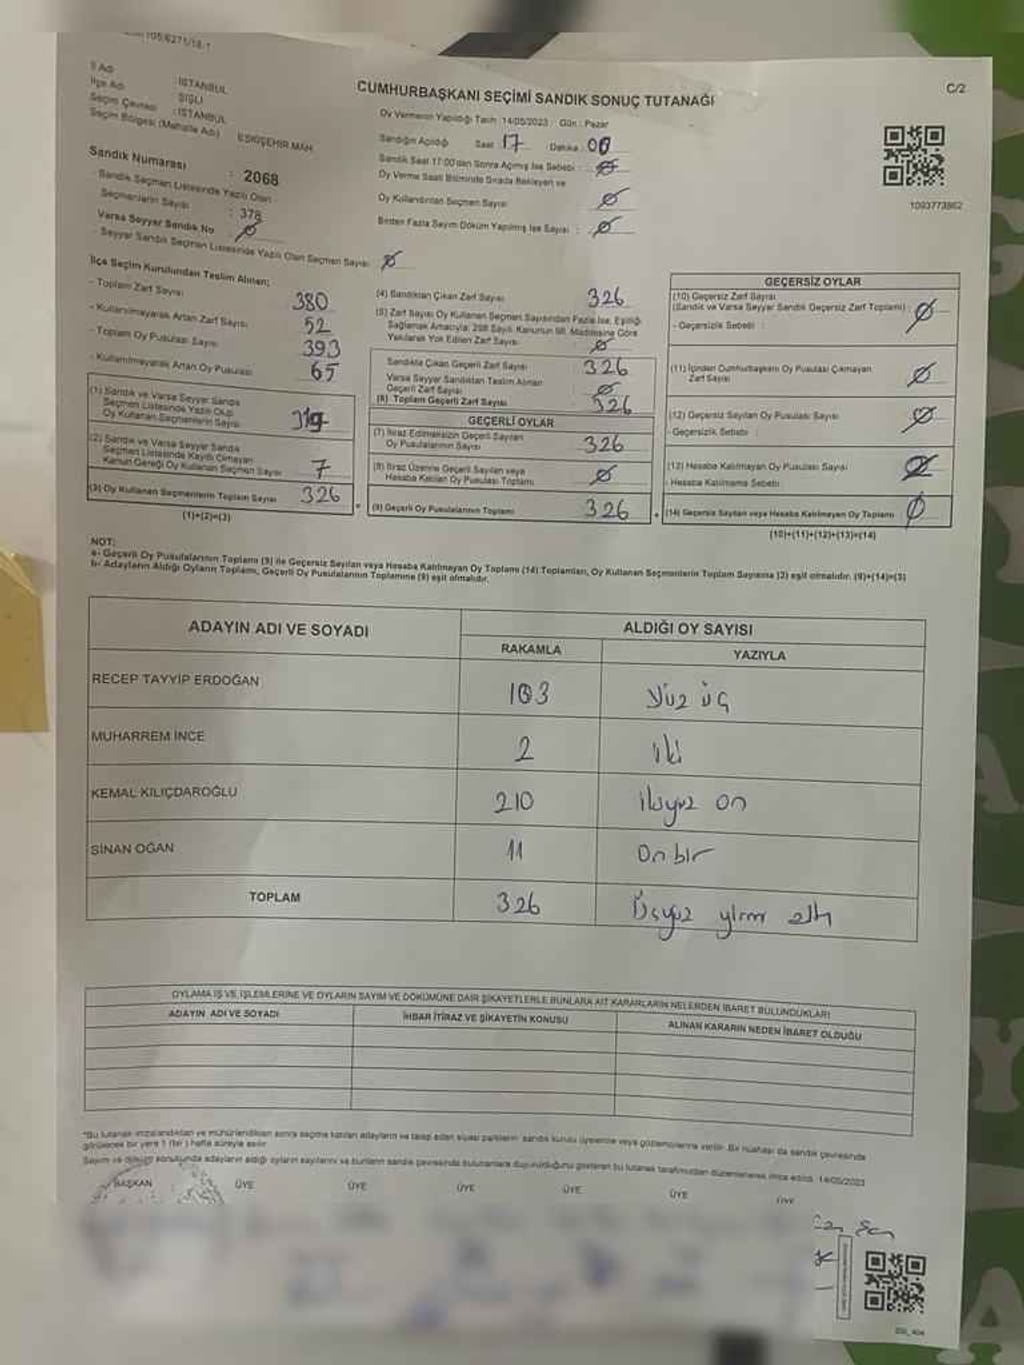 CUMHURBAŞKANI SEÇİMİ SANDIK SONUÇ TUTANAĞI
C/2
İl Adı : İSTANBUL
İlçe Adı : ŞİŞLİ
Seçim Çevresi : İSTANBUL
Seçim Bölgesi (Mahalle Adı) ESKİŞEHİR MAH.
Sandık Numarası : 2068
- Sandık Seçmen Listesinde Yazılı Olan
Seçmenlerin Sayısı : 378
Varsa Seyyar Sandık No Ø
- Seyyar Sandık Seçmen Listesinde Yazılı Olan Seçmen Sayısı Ø
Oy Vermenin Yapıldığı Tarih: 14/05/2023 Gün: Pazar
Sandığın Açıldığı Saat: 17 Dakika: 00
Sandık Saat 17:00'dan Sonra Açılmış İse Sebebi : Ø
Oy Verme Saati Bitiminde Sırada Bekleyen ve
Oy Kullandırılan Seçmen Sayısı Ø
Birden Fazla Sayım Döküm Yapılmış İse Sayısı : Ø
1093773862
İlçe Seçim Kurulundan Teslim Alınan;
- Toplam Zarf Sayısı 380
- Kullanılmayarak Artan Zarf Sayısı 52
- Toplam Oy Pusulası Sayısı 393
- Kullanılmayarak Artan Oy Pusulası 65
(1) Sandık ve Varsa Seyyar Sandık
Seçmen Listesinde Yazılı Olup
Oy Kullanan Seçmenlerin Sayısı 319
(2) Sandık ve Varsa Seyyar Sandık
Seçmen Listesinde Kayıtlı Olmayan
Kanun Gereği Oy Kullanan Seçmen Sayısı 7
(3) Oy Kullanan Seçmenlerin Toplam Sayısı 326
(1)+(2)=(3)
(4) Sandıktan Çıkan Zarf Sayısı 326
(5) Zarf Sayısı Oy Kullanan Seçmen Sayısından Fazla İse, Eşitliği
Sağlamak Amacıyla, 298 Sayılı Kanunun 98. Maddesine Göre
Yakılarak Yok Edilen Zarf Sayısı Ø
Sandıkta Çıkan Geçerli Zarf Sayısı 326
Varsa Seyyar Sandıktan Teslim Alınan
Geçerli Zarf Sayısı Ø
(6) Toplam Geçerli Zarf Sayısı 326
GEÇERLİ OYLAR
(7) İtiraz Edilmeksizin Geçerli Sayılan
Oy Pusulalarının Sayısı 326
(8) İtiraz Üzerine Geçerli Sayılan veya
Hesaba Katılan Oy Pusulası Toplamı Ø
(9) Geçerli Oy Pusulalarının Toplamı 326
GEÇERSİZ OYLAR
(10) Geçersiz Zarf Sayısı
(Sandık ve Varsa Seyyar Sandık Geçersiz Zarf Toplamı) : Ø
- Geçersizlik Sebebi :
(11) İçinden Cumhurbaşkanı Oy Pusulası Çıkmayan
Zarf Sayısı Ø
(12) Geçersiz Sayılan Oy Pusulası Sayısı Ø
- Geçersizlik Sebebi :
(13) Hesaba Katılmayan Oy Pusulası Sayısı
- Hesaba Katılmama Sebebi
(14) Geçersiz Sayılan veya Hesaba Katılmayan Oy Toplamı Ø
(10)+(11)+(12)+(13)=(14)
NOT:
a- Geçerli Oy Pusulalarının Toplamı (9) ile Geçersiz Sayılan veya Hesaba Katılmayan Oy Toplamı (14) Toplamları, Oy Kullanan Seçmenlerin Toplam Sayısına (3) eşit olmalıdır. (9)+(14)=(3)
b- Adayların Aldığı Oyların Toplamı, Geçerli Oy Pusulalarının Toplamına (9) eşit olmalıdır.
ADAYIN ADI VE SOYADI
ALDIĞI OY SAYISI
RAKAMLA YAZIYLA
RECEP TAYYİP ERDOĞAN 103 Yüz üç
MUHARREM İNCE 2 iki
KEMAL KILIÇDAROĞLU 210 ikiyüz on
SİNAN OĞAN 11 On bir
TOPLAM 326 Üçyüz yirmi altı
OYLAMA İŞ VE İŞLEMLERİNE VE OYLARIN SAYIM VE DÖKÜMÜNE DAİR ŞİKAYETLERLE BUNLARA AİT KARARLARIN NELERDEN İBARET BULUNDUKLARI
ADAYIN ADI VE SOYADI İHBAR İTİRAZ VE ŞİKAYETİN KONUSU ALINAN KARARIN NEDEN İBARET OLDUĞU
*Bu tutanak imzalandıktan ve mühürlendikten sonra seçime katılan adayların ve talep eden siyasi partilerin sandık kurulu üyelerine veya gözlemcilerine verilir. Bir nüshası da sandık çevresinde
görülecek bir yere 1 (bir) hafta süreyle asılır.
Sayım ve döküm sonucunda adayların aldığı oyların sayılarını ve bunların sandık çevresinde bulunanlara duyurulduğunu gösteren bu tutanak tarafımızdan düzenlenerek imza edildi. 14/05/2023
BAŞKAN ÜYE ÜYE ÜYE ÜYE ÜYE ÜYE